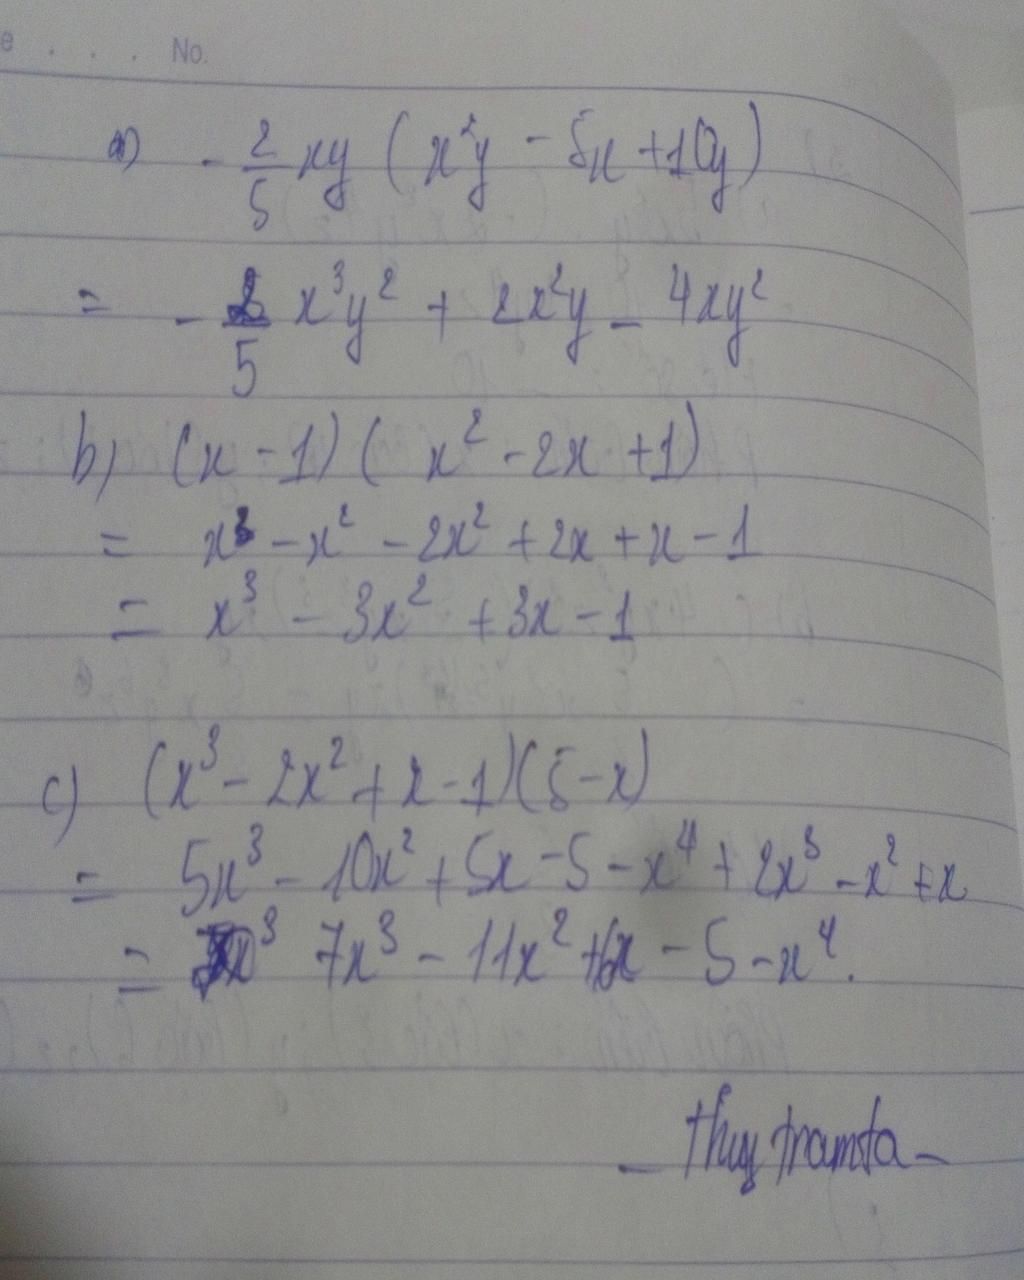 e . . . . No.
a) - 2/5 xy ( x²y - 5x + 10y )
= - 2/5 x³y² + 2x²y - 4xy²
b) (x - 1) ( x² - 2x + 1)
= x³ - x² - 2x² + 2x + x - 1
= x³ - 3x² + 3x - 1
c) (x³ - 2x² + x - 1)(5 - x)
= 5x³ - 10x² + 5x - 5 - x⁴ + 2x³ - x² + x
= 7x³ - 11x² + 6x - 5 - x⁴.
- thuytramta -